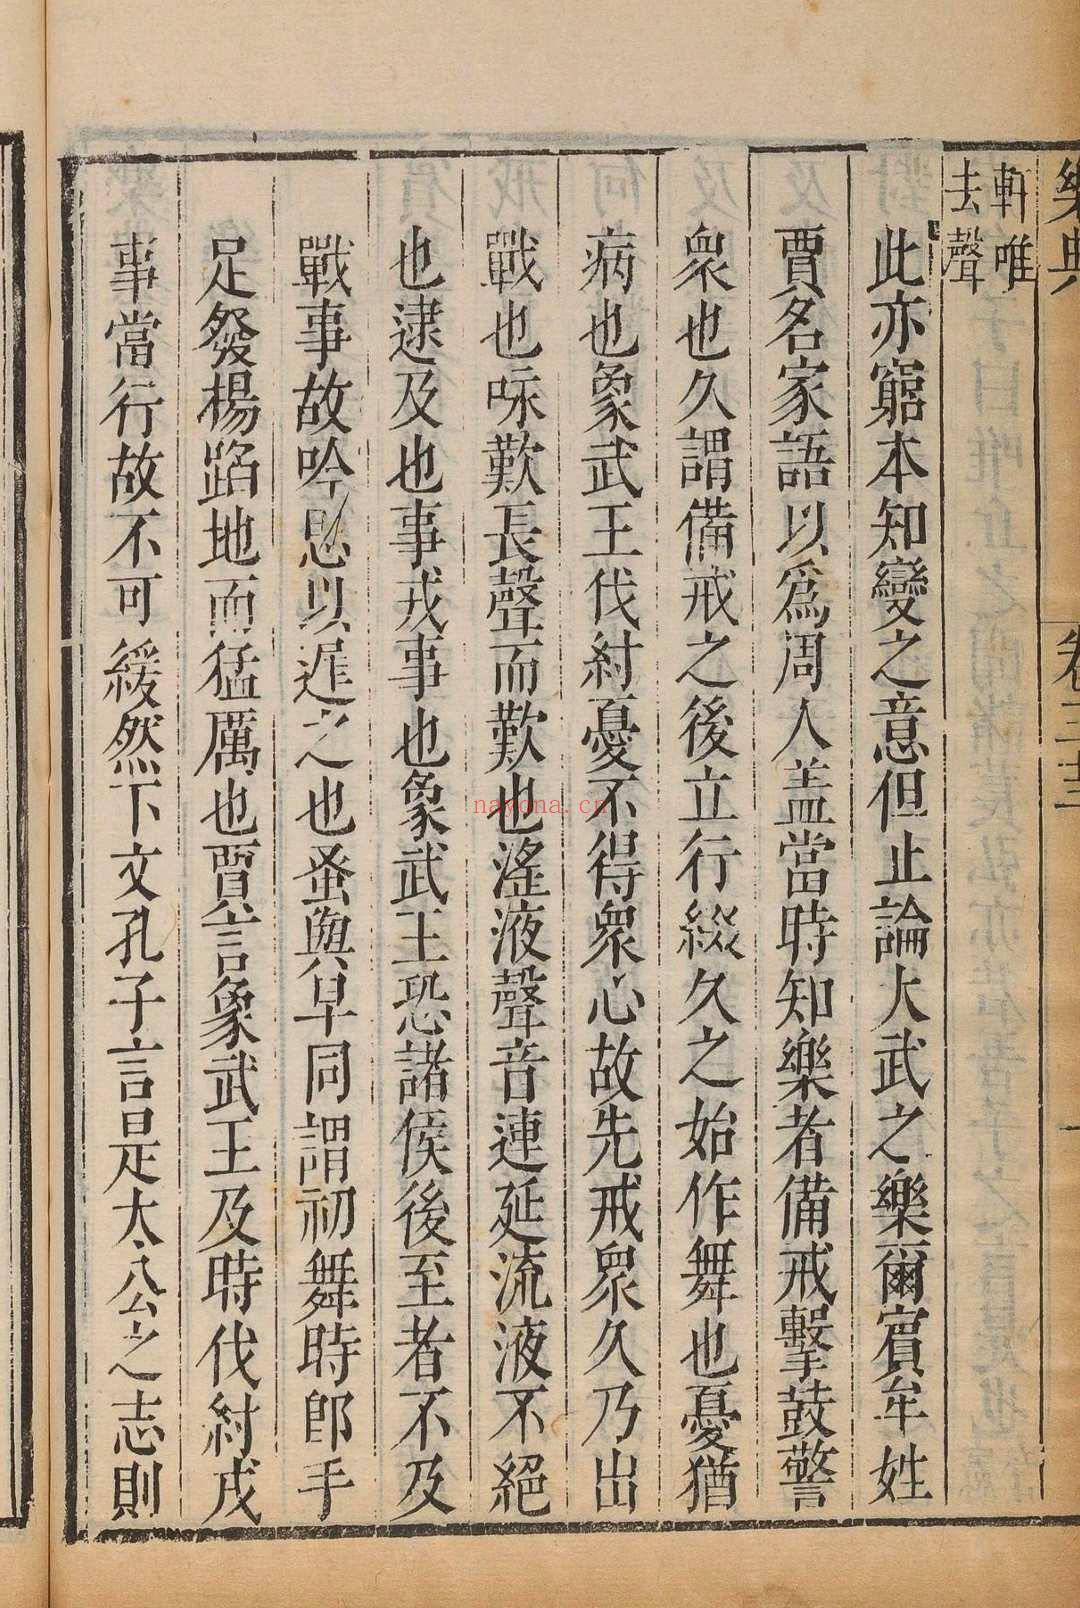 樂典
卷三十三
軒唯
去聲
此亦窮本知變之意但止論大武之樂爾賔牟姓
賈名家語以爲周人盖當時知樂者備戒擊鼓警
衆也久謂備戒之後立行綴久之始作舞也憂猶
病也象武王伐紂憂不得衆心故先戒衆久乃出
戰也咏歎長聲而歎也滛液聲音連延流液不絕
也逮及也事戎事也象武王恐諸侯後至者不及
戰事故吟思以遲之也蚤與早同謂初舞時即手
足發楊蹈地而猛厲也賈言象武王及時伐紂戎
事當行故不可緩然下文孔子言是太公之志則
nayona.cn